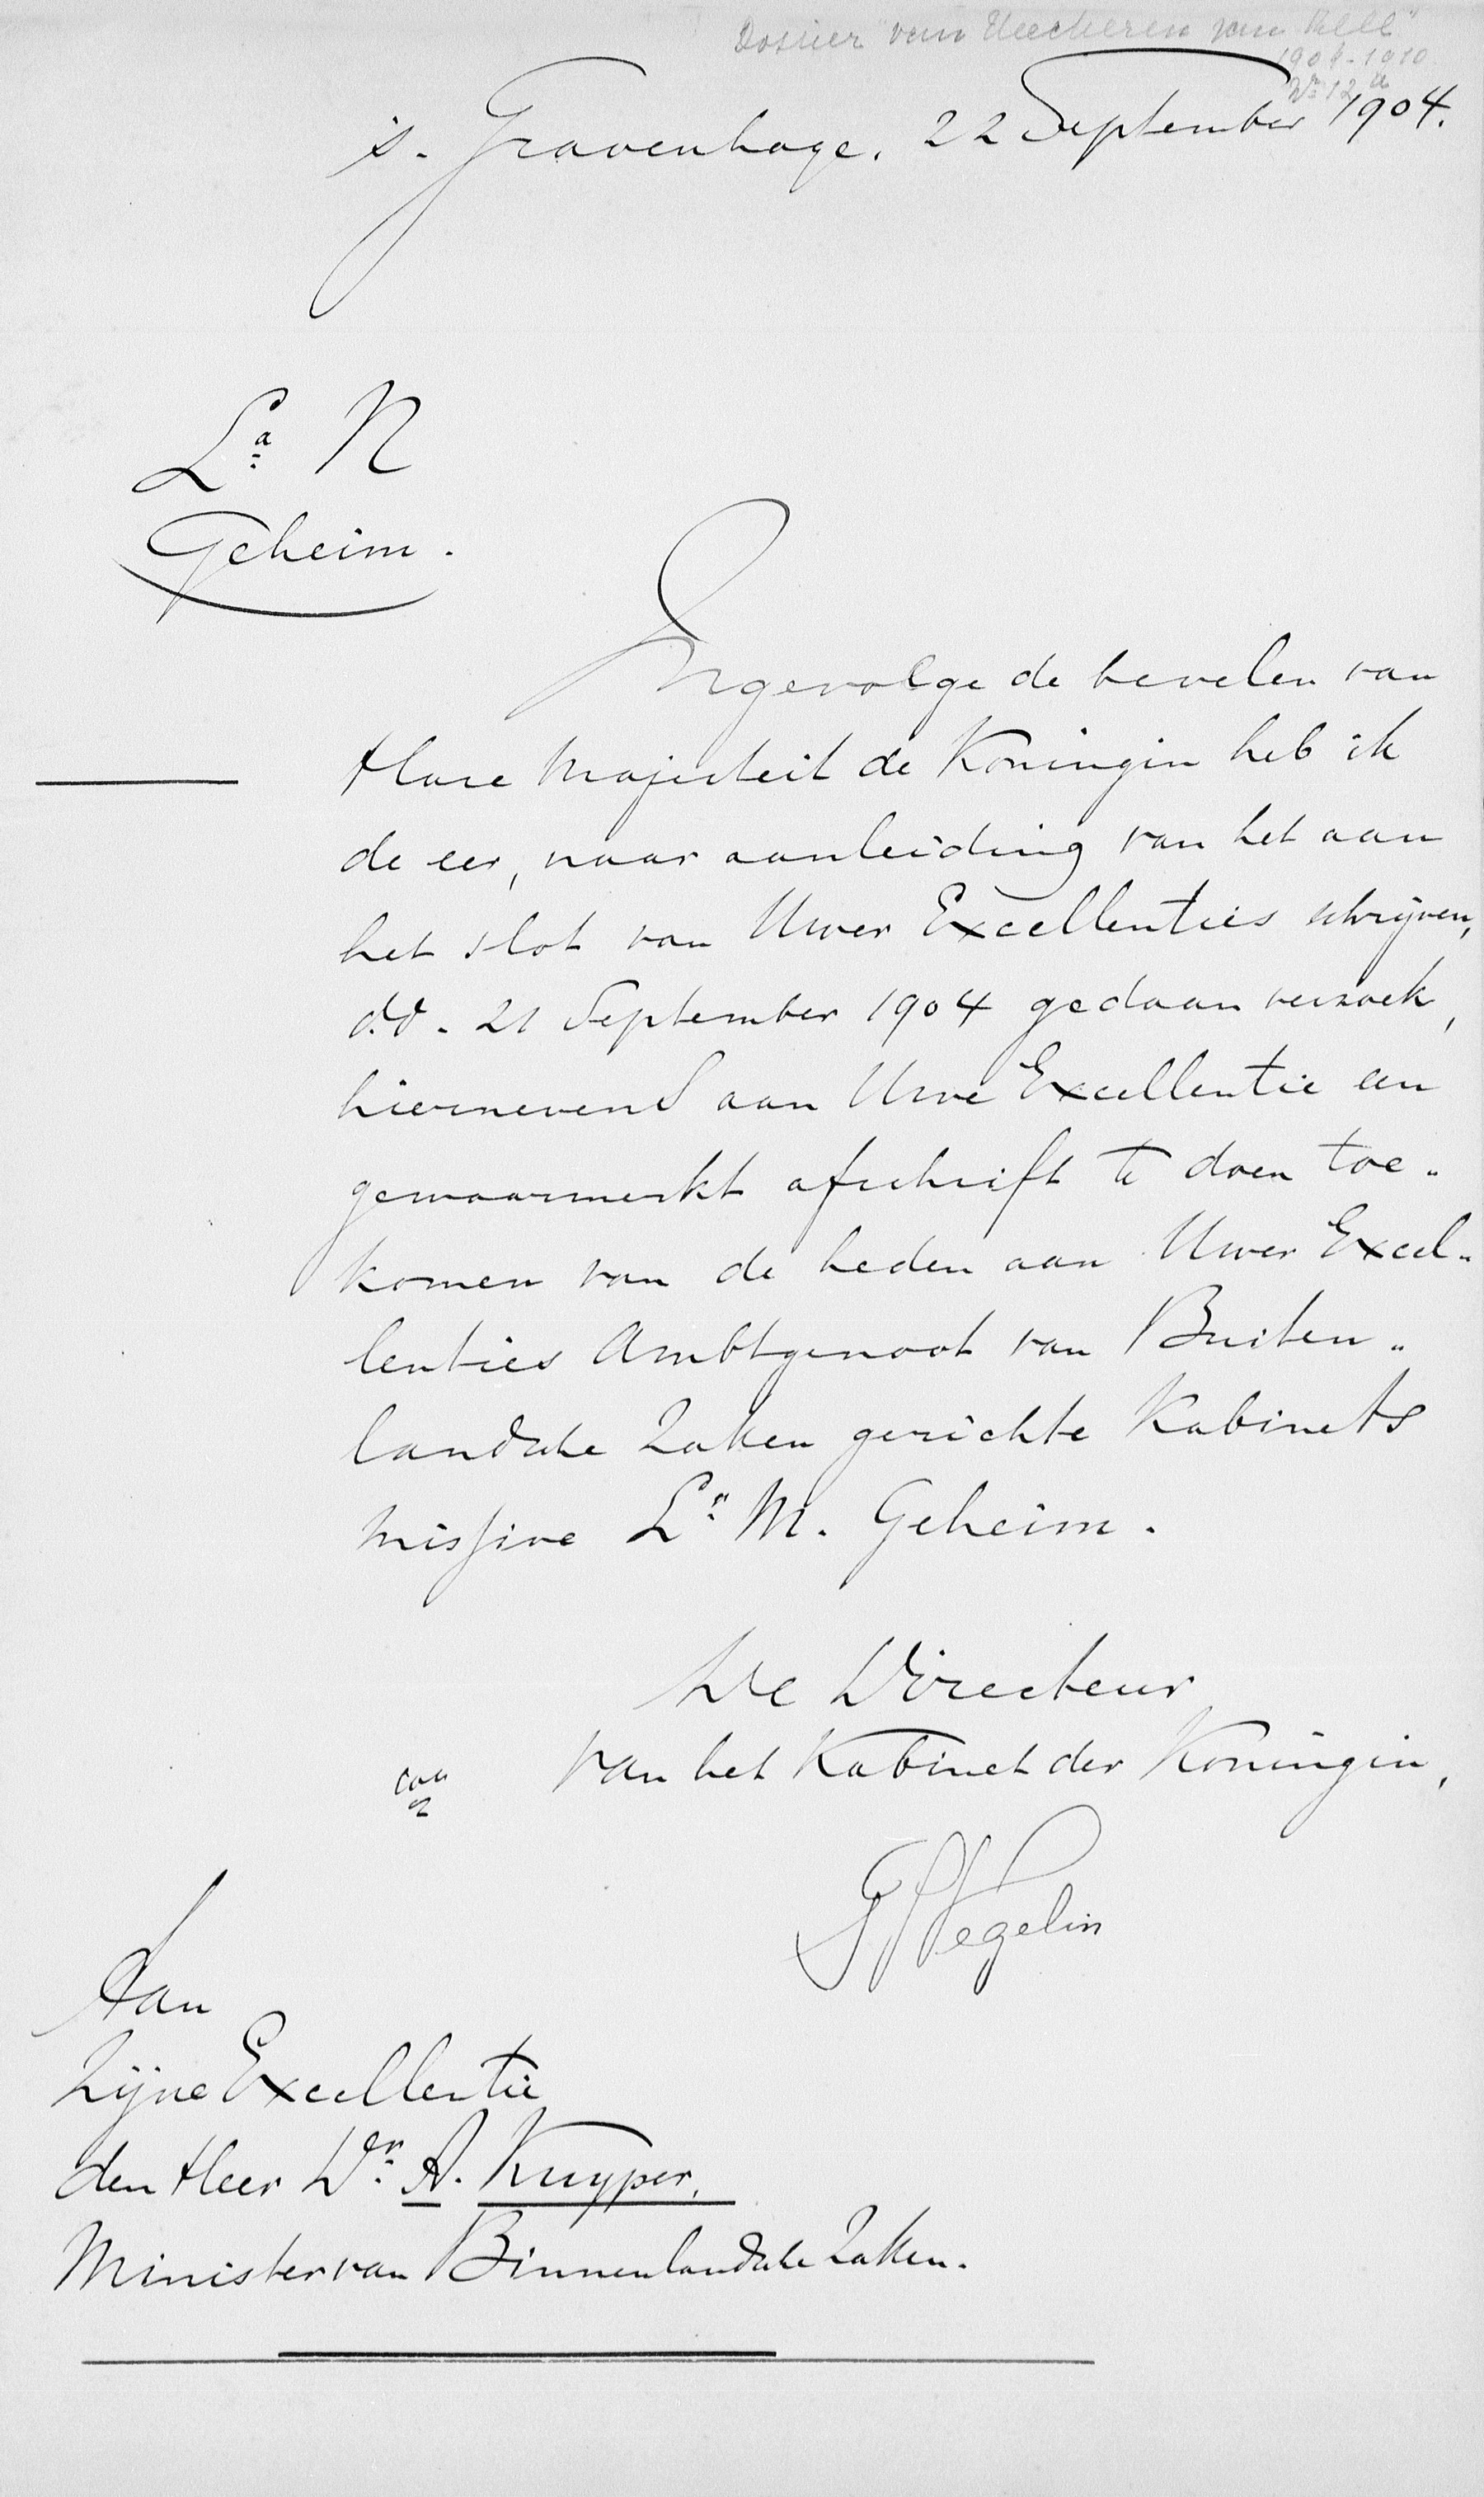 Dossier "van Heeckeren van Kell"
1904-1910
No 12a
's-Gravenhage, 22 September 1904.
La N
Geheim.
Ingevolge de bevelen van
Hare Majesteit de Koningin heb ik
de eer, naar aanleiding van het aan
het slot van Uwer Excellenties schrijven,
d.d. 21 September 1904 gedaan verzoek,
hiernevens aan Uwe Excellentie een
gewaarmerkt afschrift te doen toe-
komen van de heden aan Uwer Excel-
lenties Ambtgenoot van Buiten-
landsche Zaken gerichte Kabinets
missive La M. Geheim.
De Directeur
van het Kabinet der Koningin,
Vegelin
Aan
Zijne Excellentie
den Heer Dr. A. Kuyper,
Minister van Binnenlandsche Zaken.